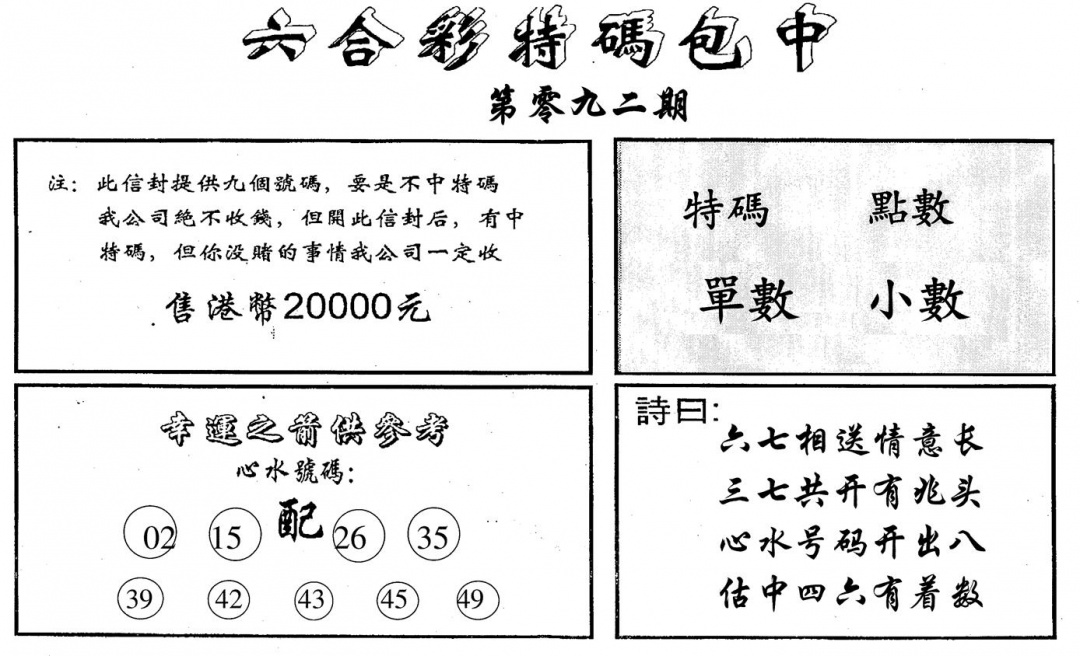 六合彩特碼包中
第零九二期
注：此信封提供九個號碼，要是不中特碼
我公司絕不收錢，但開此信封后，有中
特碼，但你没賭的事情我公司一定收
售港幣20000元
特碼 點數
單數 小數
幸運之箭供參考
心水號碼：
配
02 15 26 35
39 42 43 45 49
詩曰：
六七相送情意长
三七共开有兆头
心水号码开出八
估中四六有着数